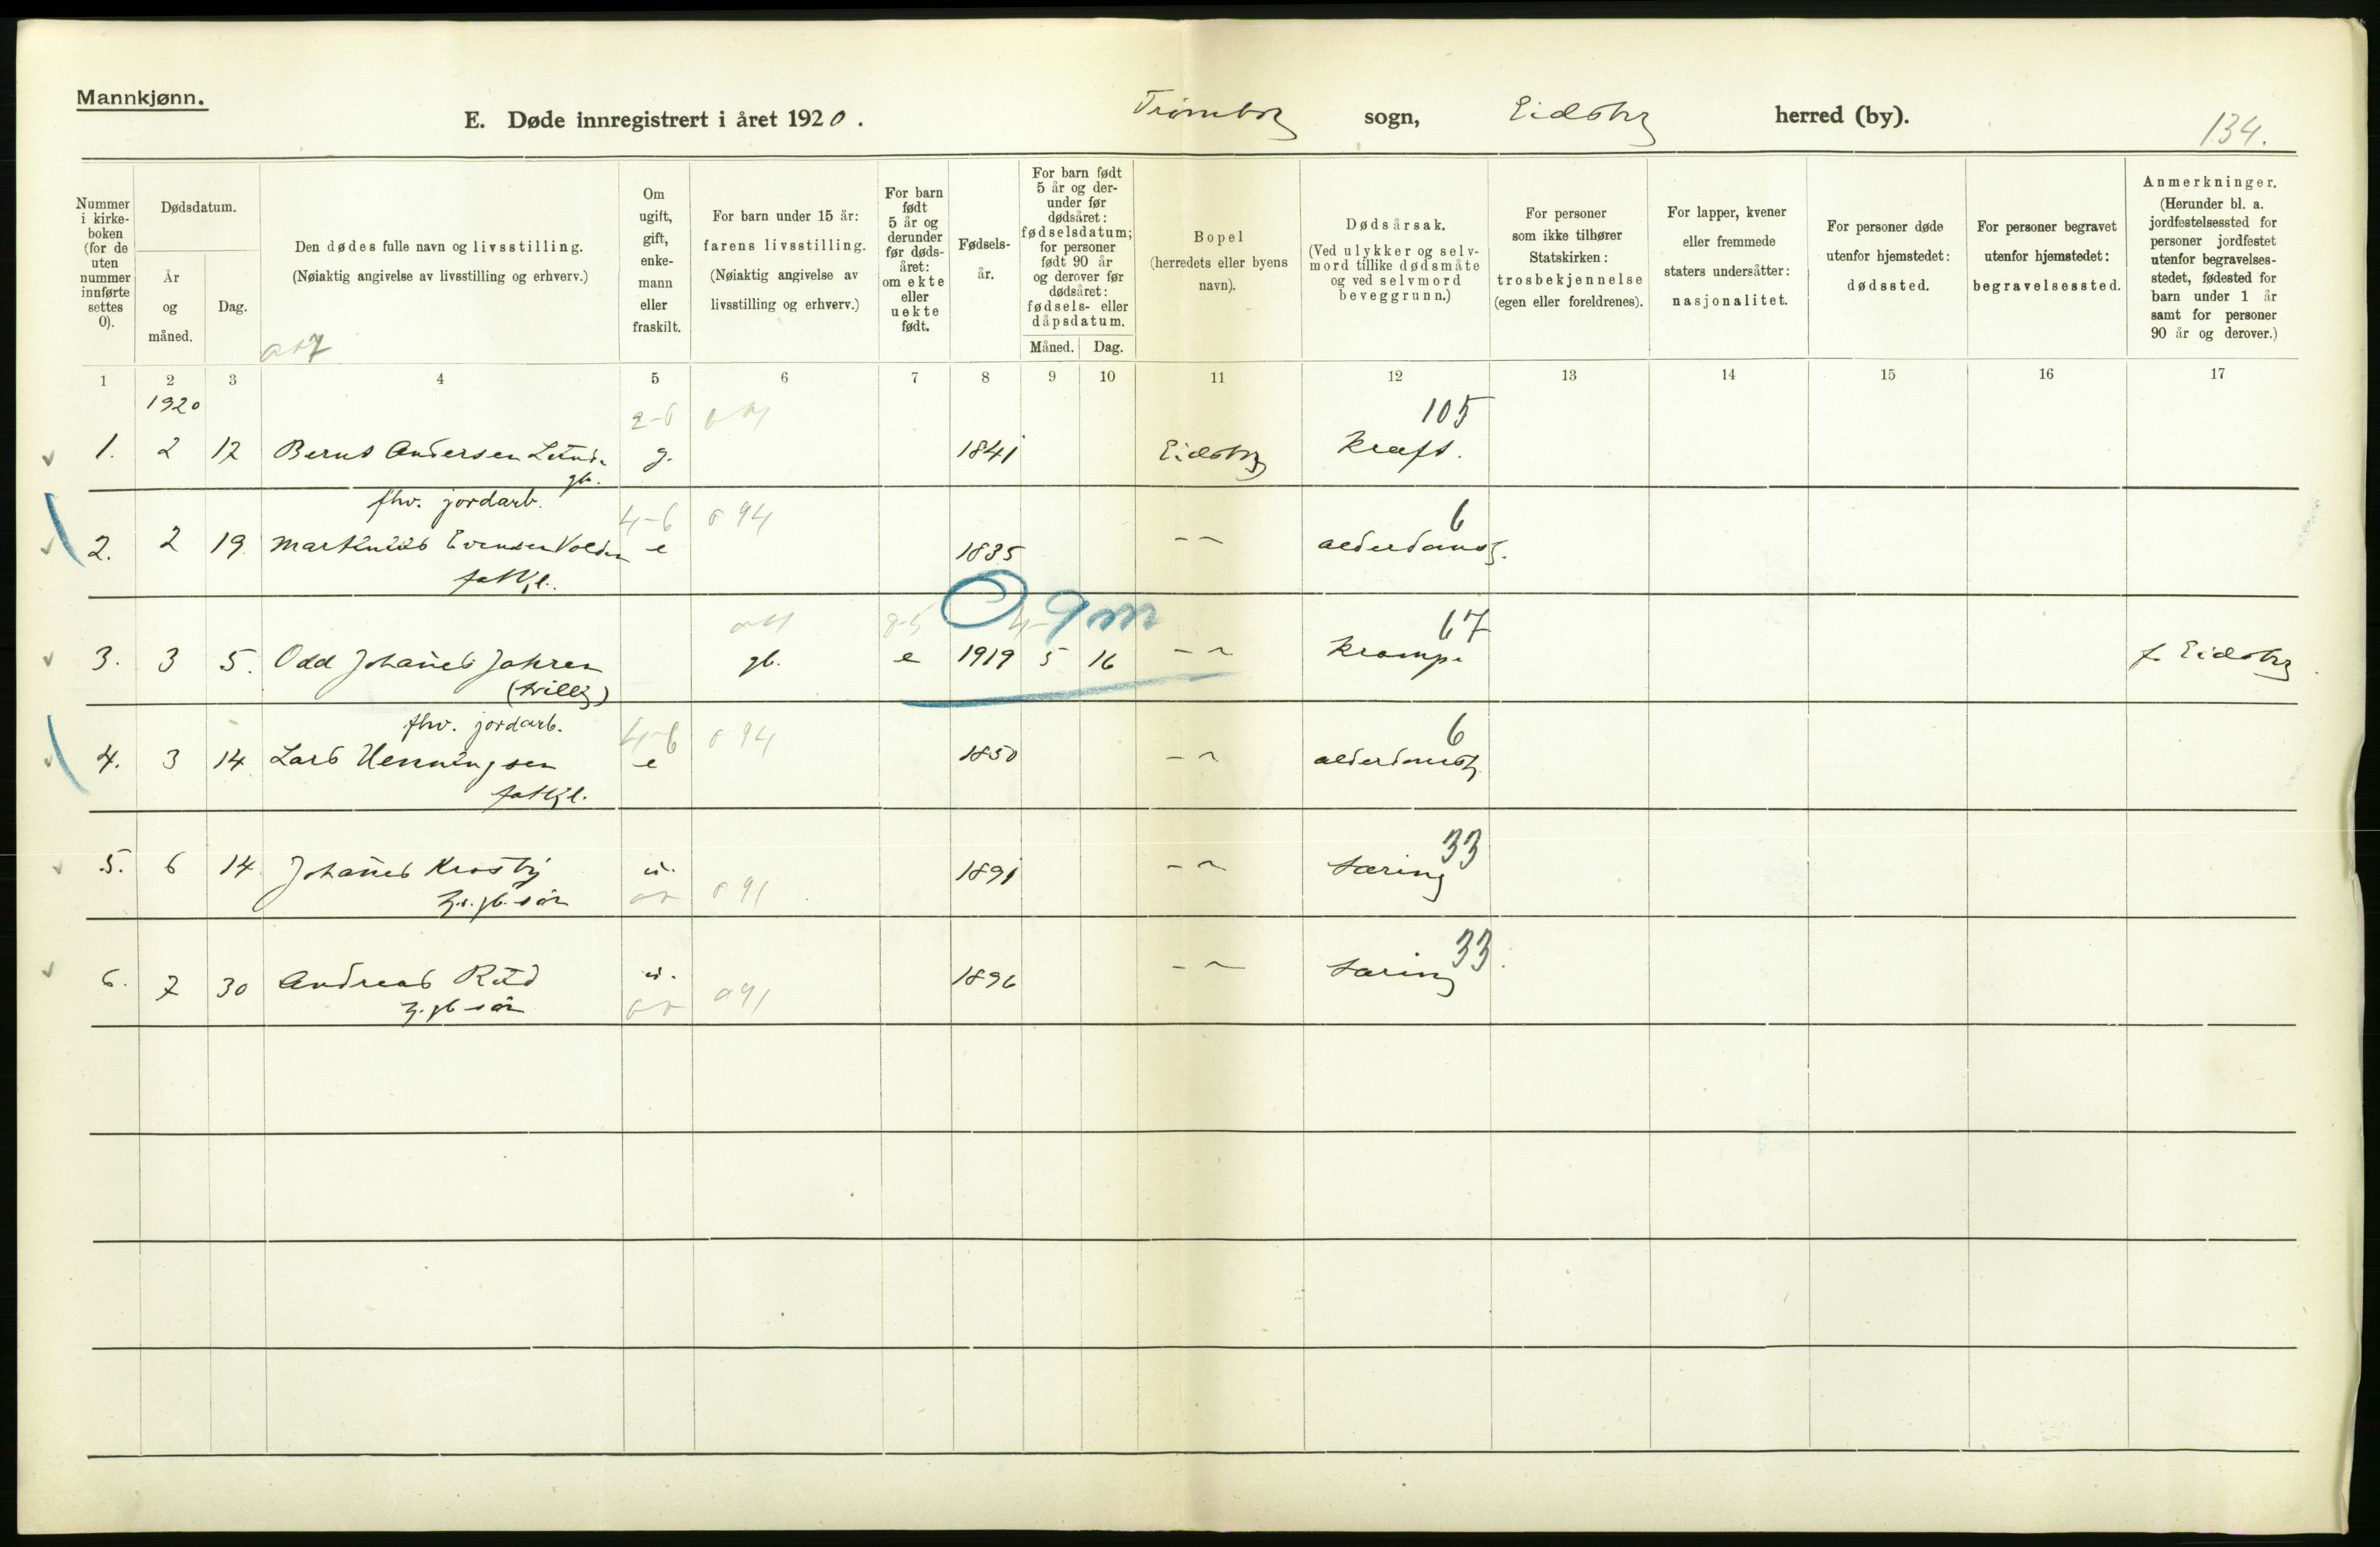 Mannkjønn.
E. Døde innregistrert i året 1920. Trømborg sogn, Eidsberg herred (by).
134.
Nummer i kirkeboken (for de uten nummer innførte settes 0).
Dødsdatum.
År og måned.
Dag.
Den dødes fulle navn og livsstilling.
(Nøiaktig angivelse av livsstilling og erhverv.)
Om ugift, gift, enkemann eller fraskilt.
For barn under 15 år: farens livsstilling.
(Nøiaktig angivelse av livsstilling og erhverv.)
For barn født 5 år og derunder før dødsåret: om ekte eller uekte født.
Fødselsår.
For barn født 5 år og derunder før dødsåret: fødselsdatum; for personer født 90 år og derover før dødsåret: fødsels- eller dåpsdatum.
Måned. Dag.
Bopel (herredets eller byens navn).
Dødsårsak.
(Ved ulykker og selvmord tillike dødsmåte og ved selvmord beveggrunn.)
For personer som ikke tilhører Statskirken: trosbekjennelse (egen eller foreldrenes).
For lapper, kvener eller fremmede staters undersåtter: nasjonalitet.
For personer døde utenfor hjemstedet: dødssted.
For personer begravet utenfor hjemstedet: begravelsessted.
Anmerkninger.
(Herunder bl. a. jordfestelsessted for personer jordfestet utenfor begravelsesstedet, fødested for barn under 1 år samt for personer 90 år og derover.)
1 2 3 4 5 6 7 8 9 10 11 12 13 14 15 16 17
1920
2-6 105
1. 2 12 Bernt Andersen Lund. g. 1841 Eidsberg Kræft.
gb.
fhv. jordarb.
4-6 094 6
2. 2 19. Martinius Evensen Volden e 1835 -"- alderdomss.
fattgl.
0 9 m
67
3. 3 5. Odd Johannes Jahren gb. e 1919 5 16 -"- Krampe f. Eidsberg
(tvilling)
fhv. jordarb.
4-6 094 6
4. 3 14 Lars Henningsen e 1850 -"- alderdomss.
fattgl.
33
5. 6 14 Johannes Krosby u. 1891 -"- tæring
gb. søn 091
33
6. 7 30 Andreas Rud u. 1896 -"- tæring
gb søn 091